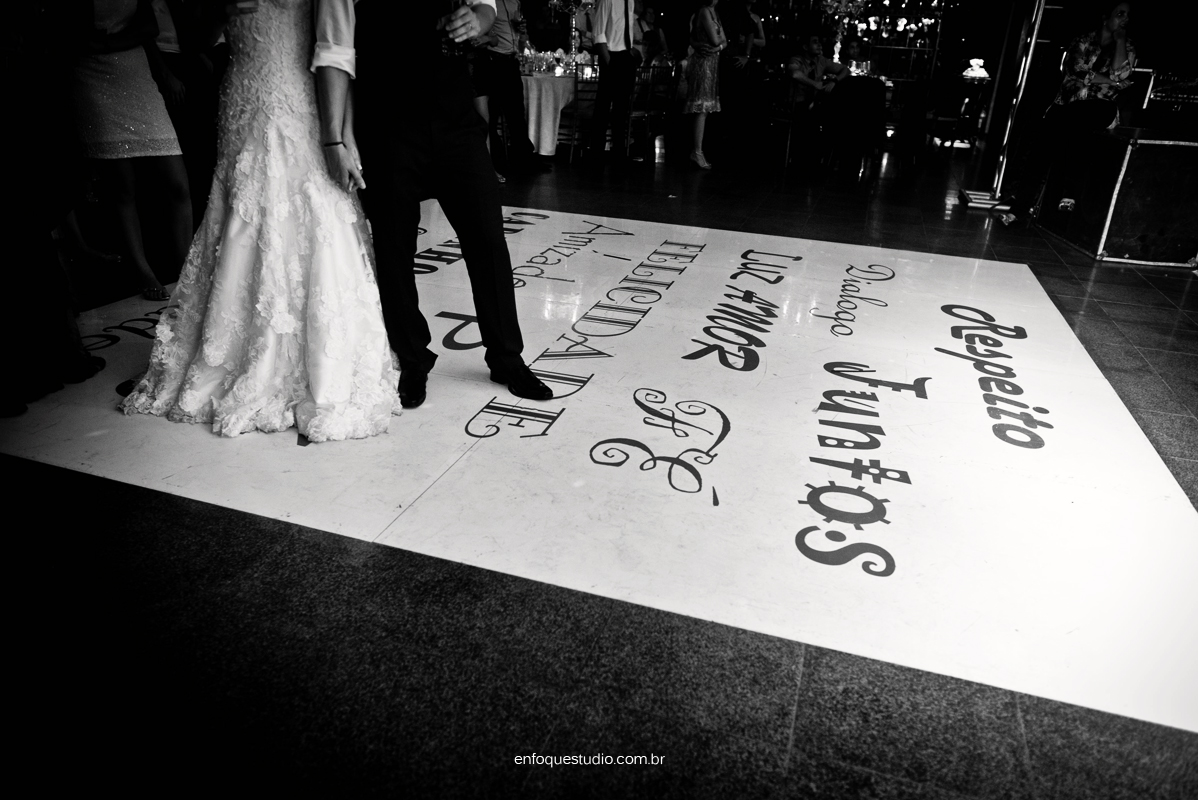 Respeito
Dialogo Juntos
LUZ AMOR FÉ
FELICIDADE
Amizade
enfoquestudio.com.br